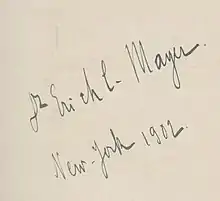 Dr Erich L. Mayer.
New-York 1902.